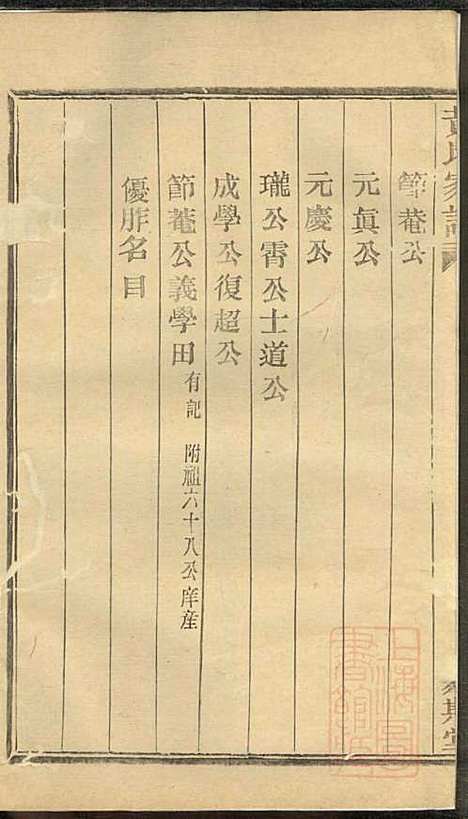 黃氏家譜
節菴公
元眞公
元慶公
瓏公霄公士道公
成學公復超公
節菴公義學田 有記 附祖六十八公庠產
優胙名目